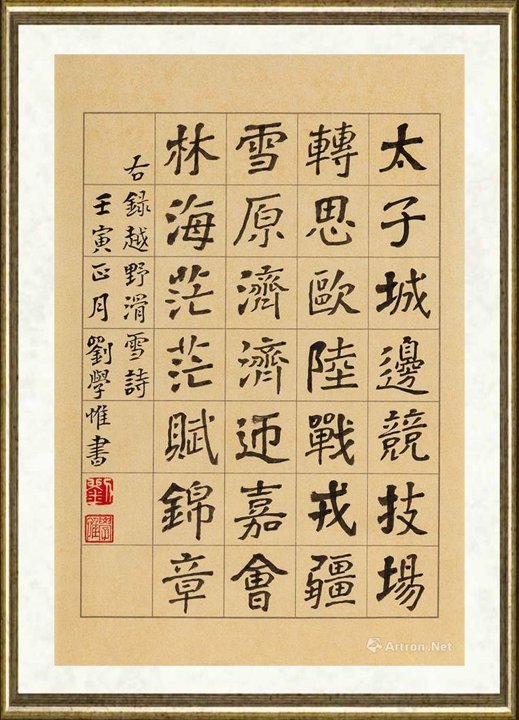 太子城邊競技場
轉思歐陸戰戎疆
雪原濟濟迊嘉會
林海茫茫賦錦章
右録越野滑雪詩
壬寅正月劉學惟書
劉
Artron.Net